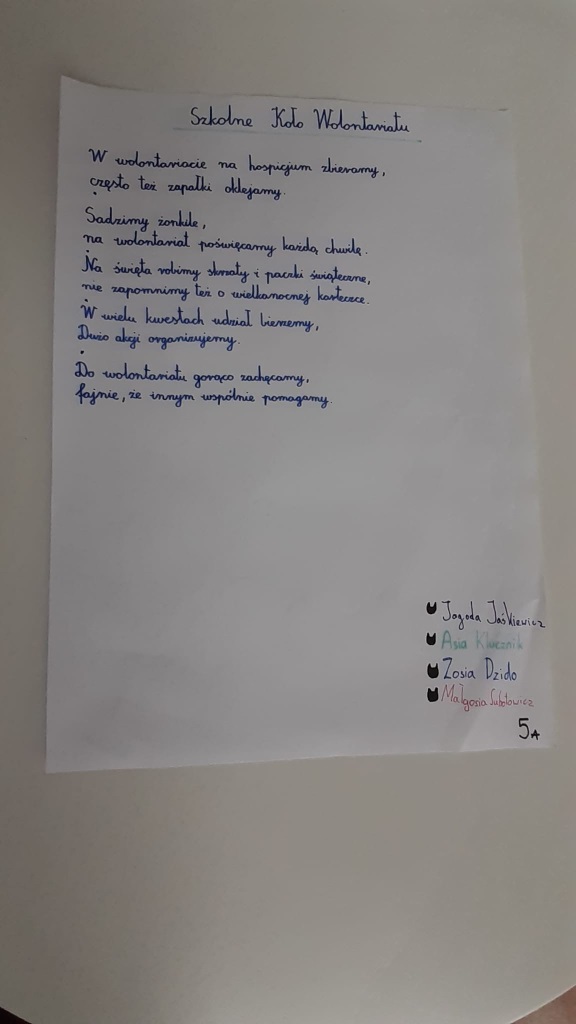 Szkolne Koło Wolontariatu
W wolontariacie na hospicjum zbieramy,
często też zapałki oklejamy.
Sadzimy żonkile,
na wolontariat poświęcamy każdą chwilę.
Na święta robimy skrzaty i paczki świąteczne,
nie zapomnimy też o wielkanocnej karteczce.
W wielu kwestach udział bierzemy,
Dużo akcji organizujemy.
Do wolontariatu gorąco zachęcamy,
fajnie, że innym wspólnie pomagamy.
Jagoda Jaśkiewicz
Asia Klucznik
Zosia Dzido
Małgosia Subotowicz
5A